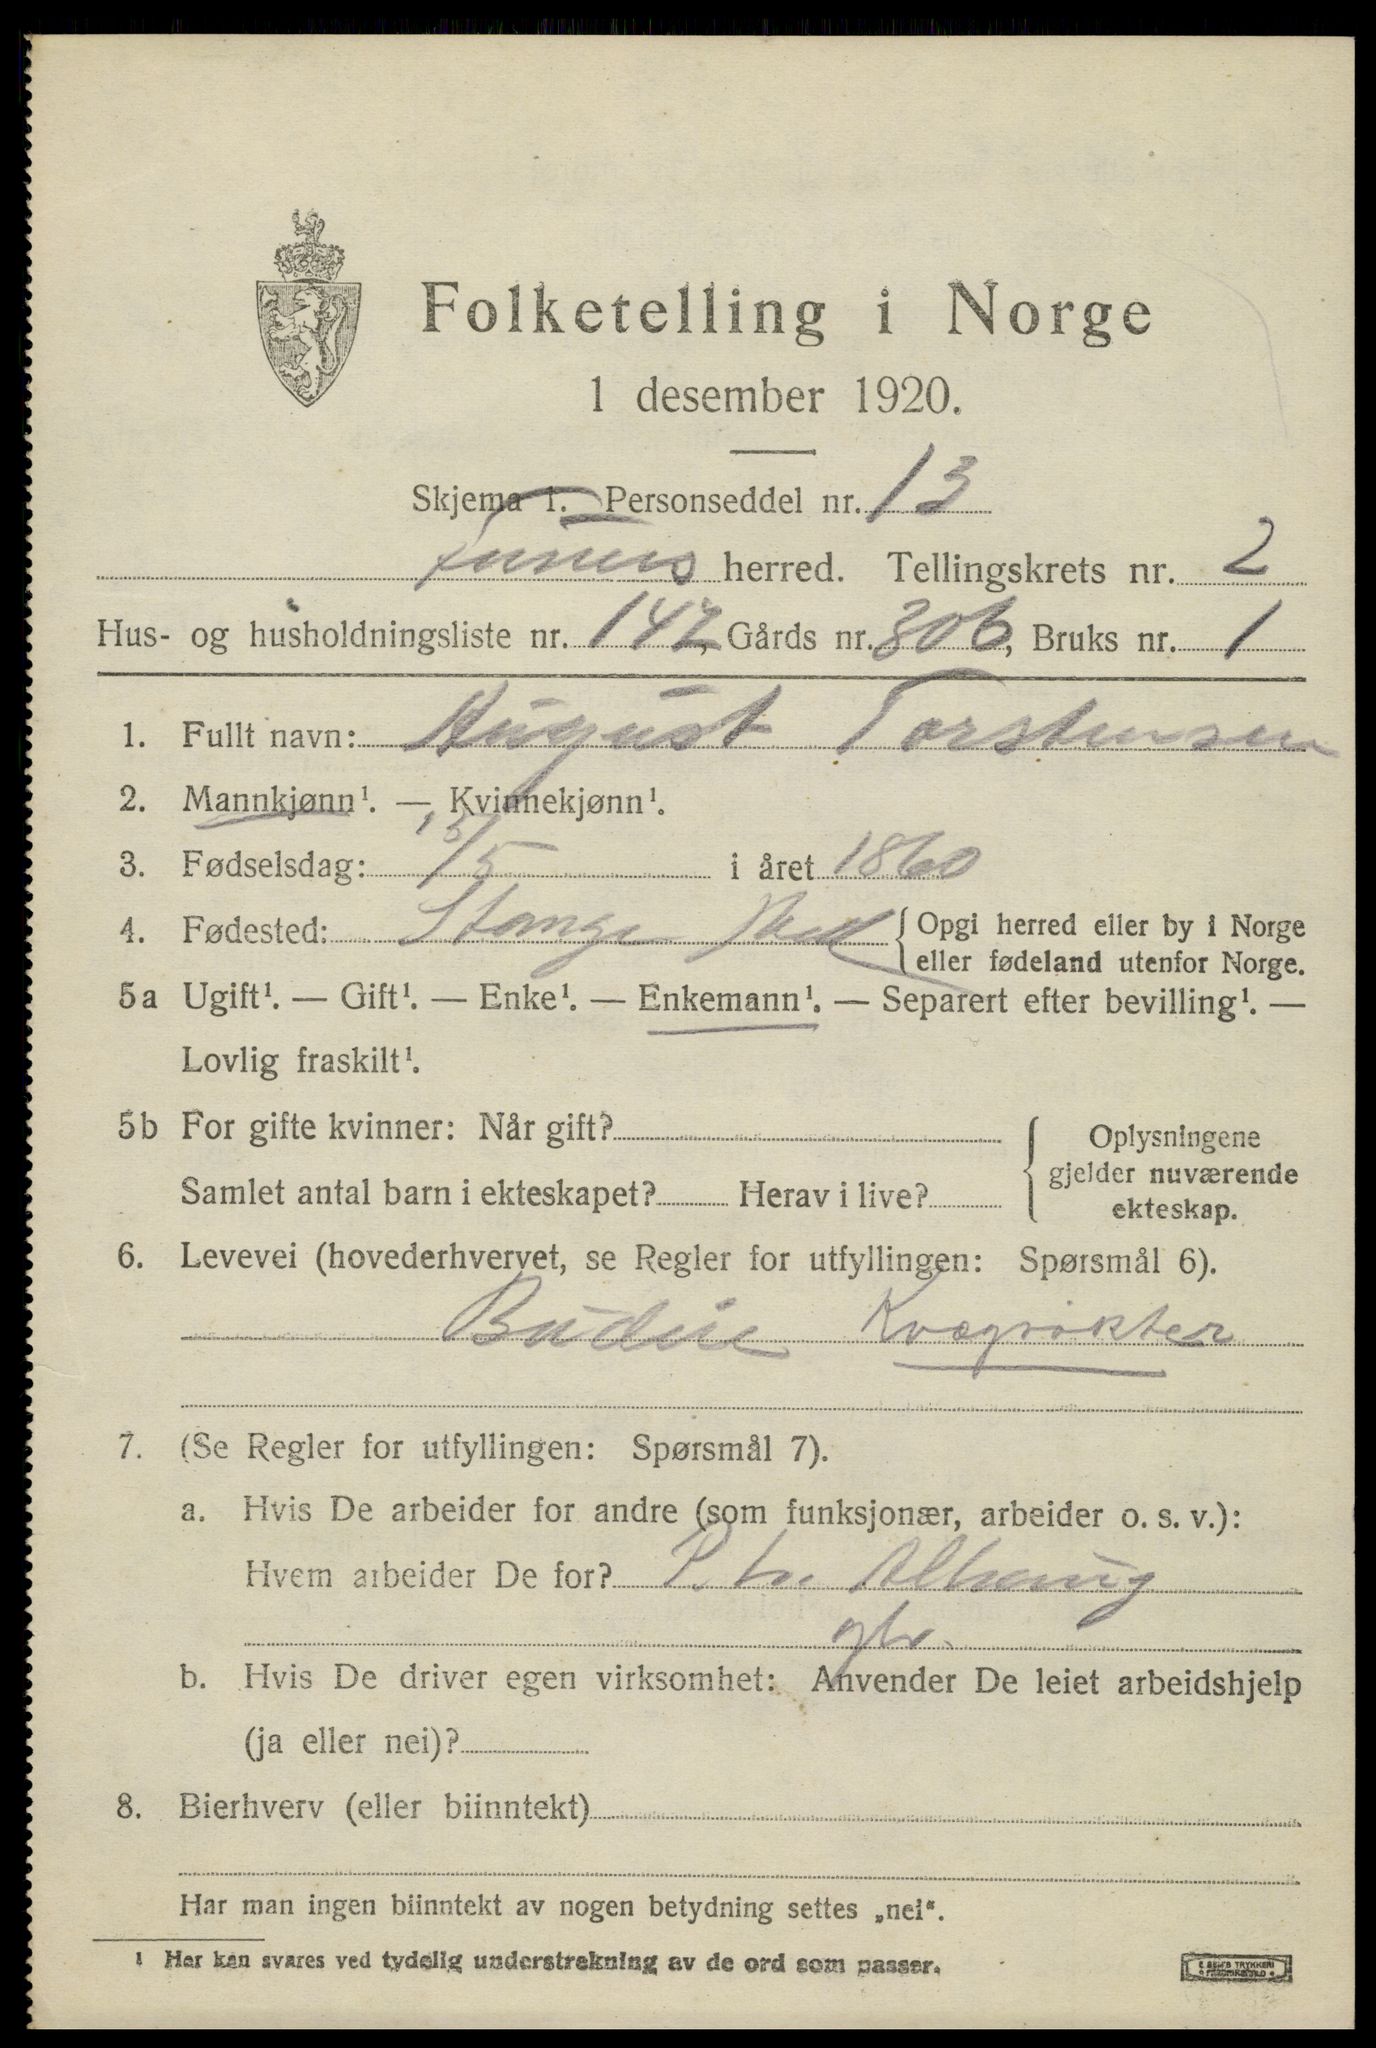 Folketelling i Norge
1 desember 1920.
Skjema 1. Personseddel nr. 13
Furnes herred. Tellingskrets nr. 2
Hus- og husholdningsliste nr. 147, Gårds nr. 306, Bruks nr. 1
1. Fullt navn: August Torstensen
2. Mannkjønn¹. — Kvinnekjønn¹.
3. Fødselsdag: 13/5 i året 1860
4. Fødested: Stange Hed { Opgi herred eller by i Norge
eller fødeland utenfor Norge.
5a Ugift¹. — Gift¹. — Enke¹. — Enkemann¹. — Separert efter bevilling¹. —
Lovlig fraskilt¹.
5b For gifte kvinner: Når gift? { Oplysningene
gjelder nuværende
Samlet antal barn i ekteskapet? Herav i live?
ekteskap.
6. Levevei (hovederhvervet, se Regler for utfyllingen: Spørsmål 6).
Kvægrøkter
7. (Se Regler for utfyllingen: Spørsmål 7).
a. Hvis De arbeider for andre (som funksjonær, arbeider o. s. v.):
Hvem arbeider De for? Alhaug
gbr.
b. Hvis De driver egen virksomhet: Anvender De leiet arbeidshjelp
(ja eller nei)?
8. Bierhverv (eller biinntekt)
Har man ingen biinntekt av nogen betydning settes „nei“.
1 Her kan svares ved tydelig understrekning av de ord som passer.